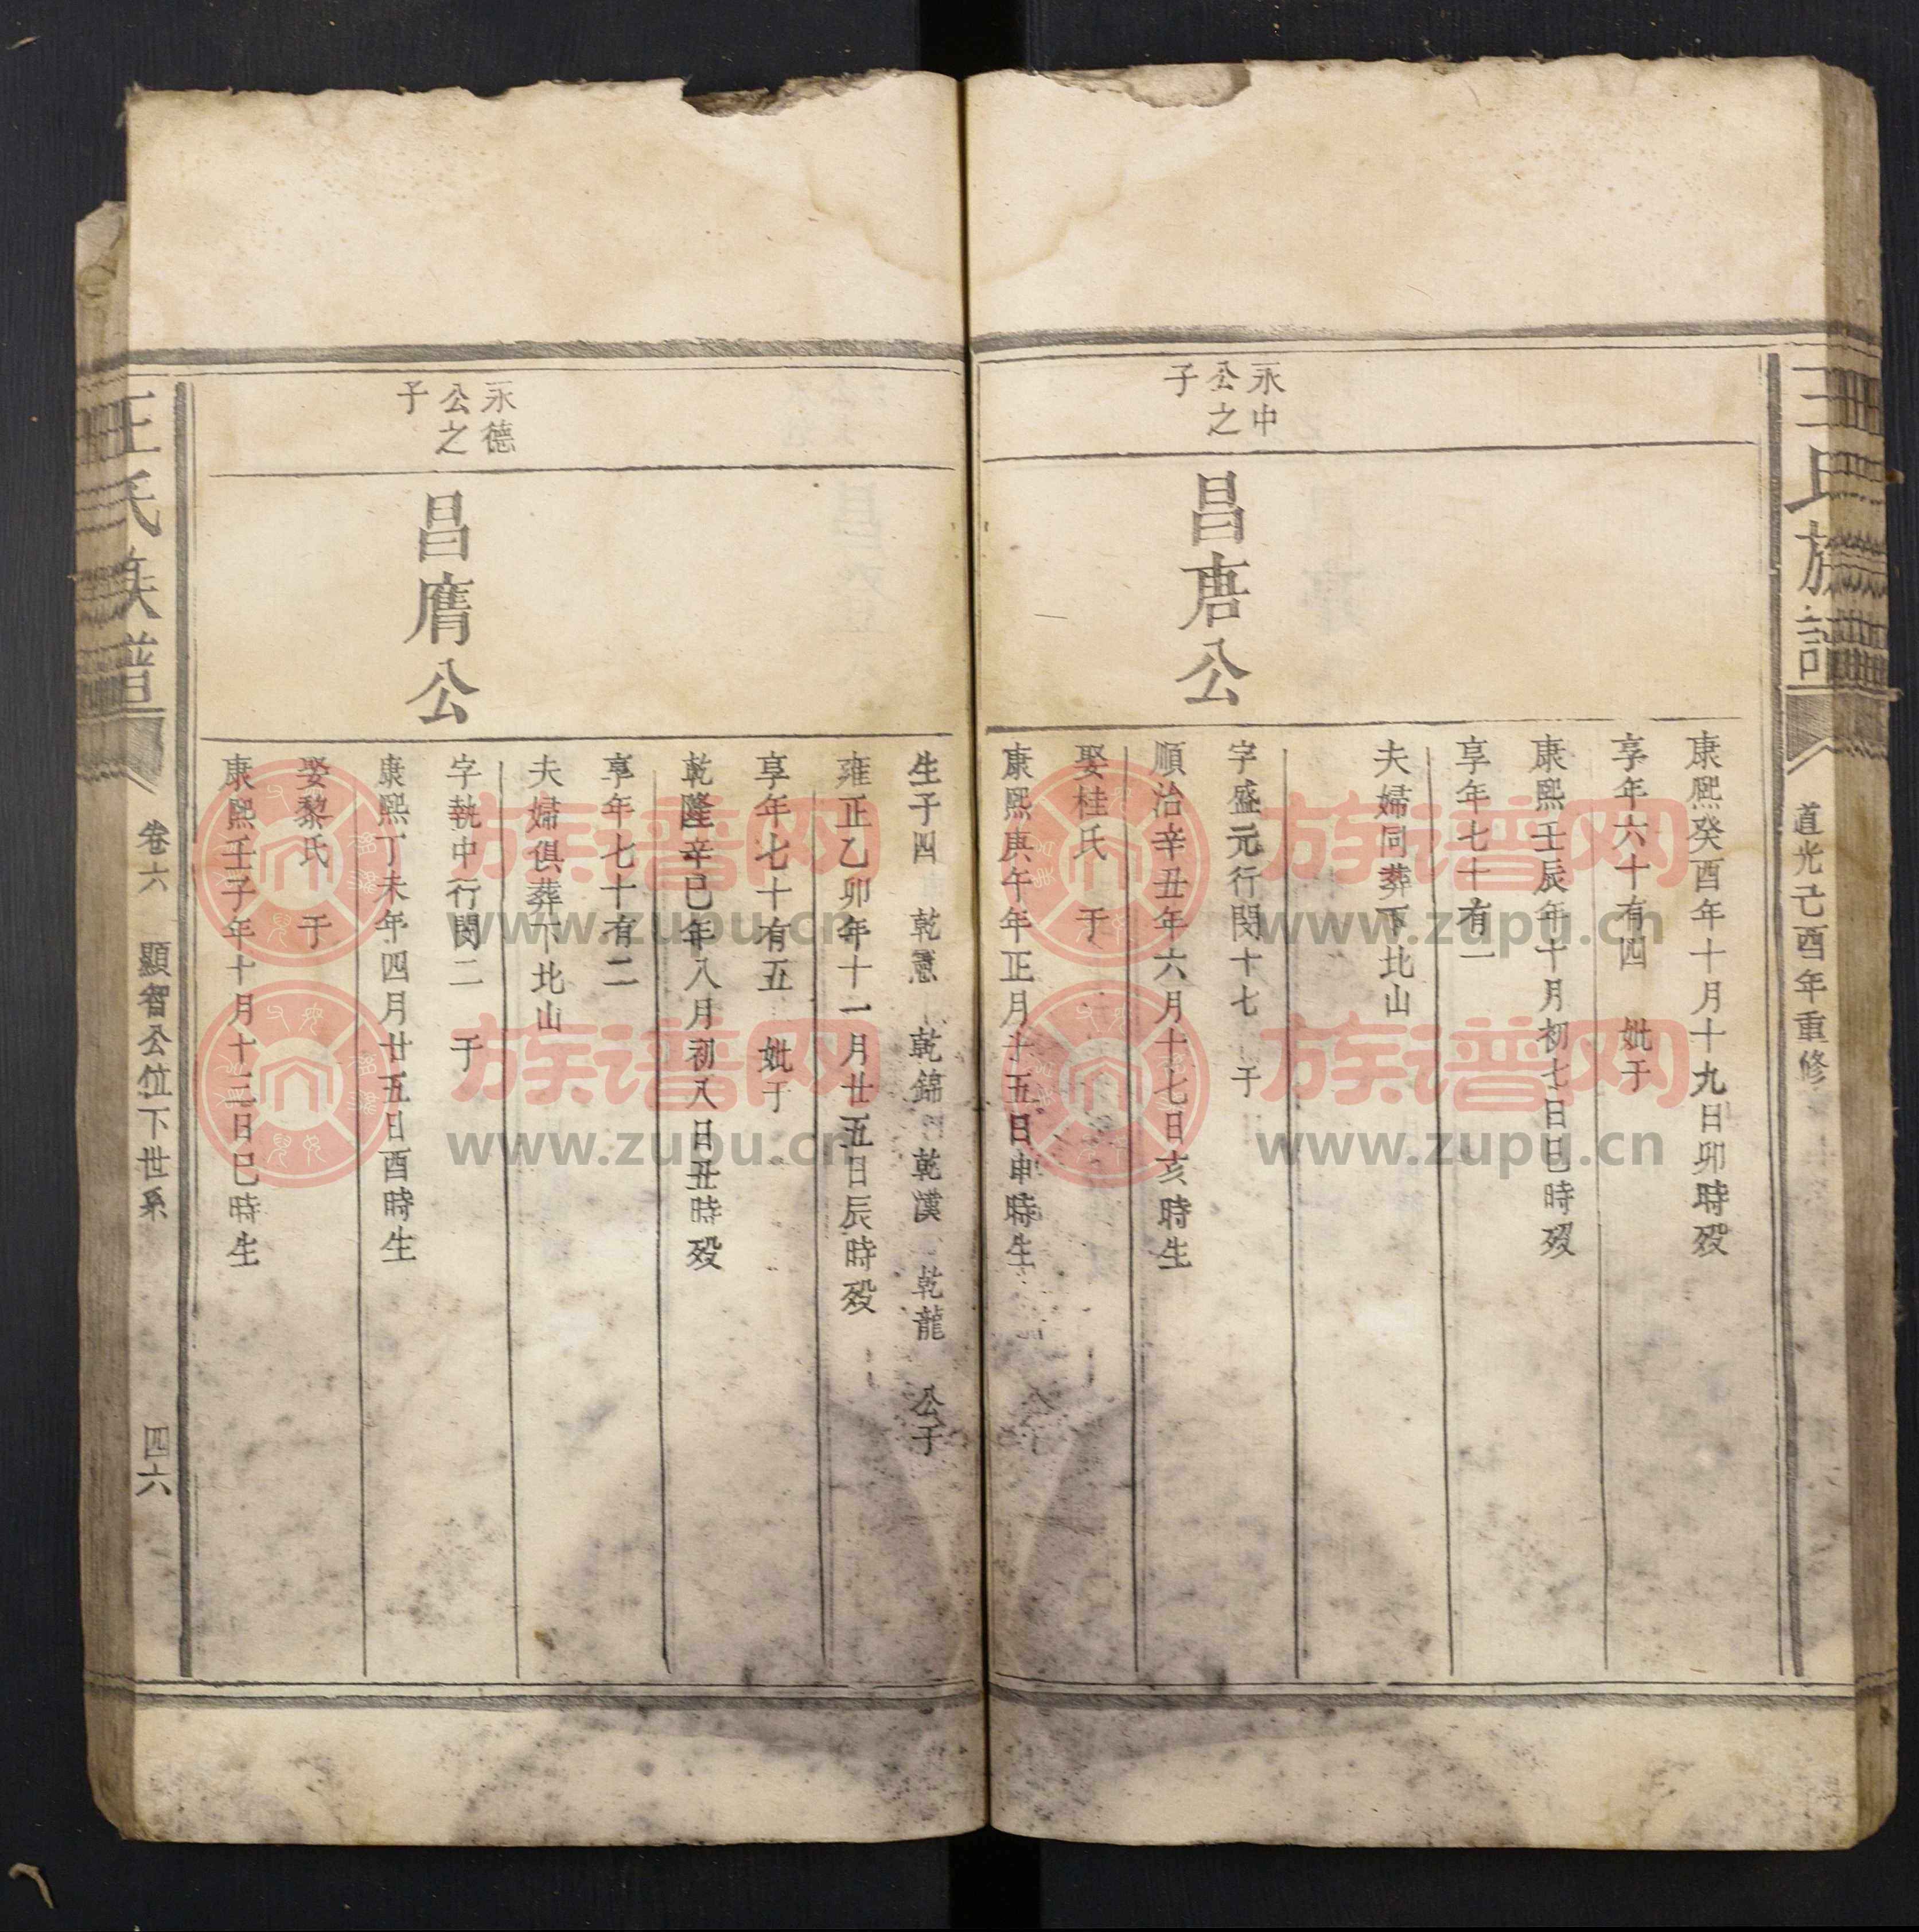 王氏族譜
道光己酉年重修
康熙癸酉年十月十九日卯時殁
享年六十有四 妣于
康熙壬辰年十月初七日巳時殁
享年七十有一
夫婦同葬下北山
永中
公之
子
昌唐公
字盛元行閔十七 于
順治辛丑年六月十七日亥時生
娶桂氏 于
康熙庚午年正月十五日申時生
生子四 乾憲 乾錦 乾漢 乾龍 公于
雍正乙卯年十一月廿五日辰時殁
享年七十有五 妣于
乾隆辛巳年八月初八日丑時殁
享年七十有二
夫婦俱葬下北山
永德
公之
子
昌膺公
字執中行閔二 于
康熙丁未年四月廿五日酉時生
娶黎氏 于
康熙壬子年十月十二日巳時生
王氏族譜
卷六 顯智公位下世系
四六
族谱网
www.zupu.cn
族谱网
www.zupu.cn
族谱网
www.zupu.cn
族谱网
www.zupu.cn